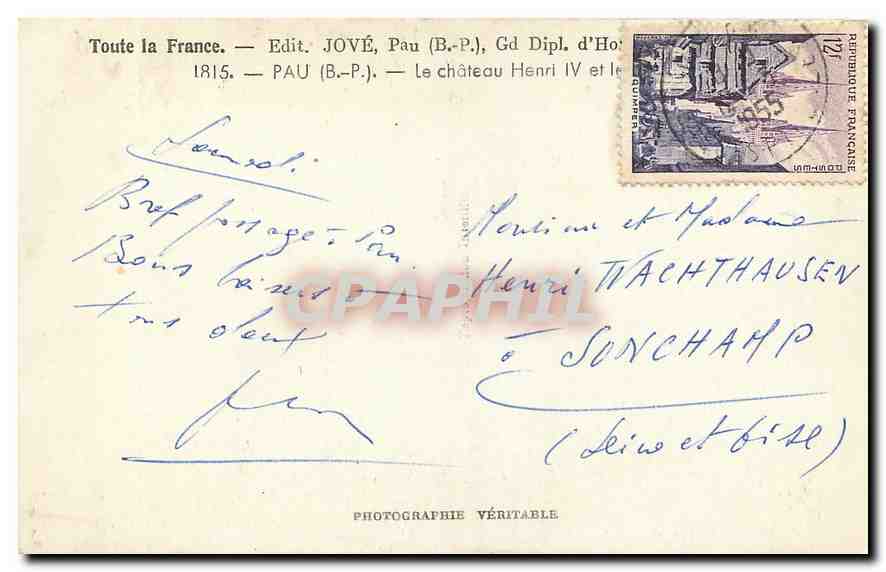 Toute la France. — Edit. JOVÉ, Pau (B.-P.), Gd Dipl. d'Ho
1815. — PAU (B.-P.). — Le château Henri IV et le
REPUBLIQUE FRANÇAISE
12f
POSTES
QUIMPER
1955
Samedi
Bref passage à Pau.
Bons baisers à
tous deux
Monsieur et Madame
Henri WACHTHAUSEN
à SONCHAMP
(Seine et Oise)
CPAPHIL
PHOTOGRAPHIE VÉRITABLE